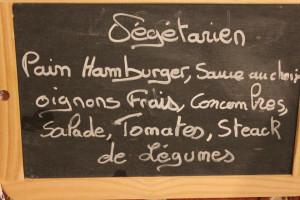 Végétarien
Pain Hamburger, Sauce au choix
oignons Frais, Concombres,
Salade, Tomates, Steack
de Légumes